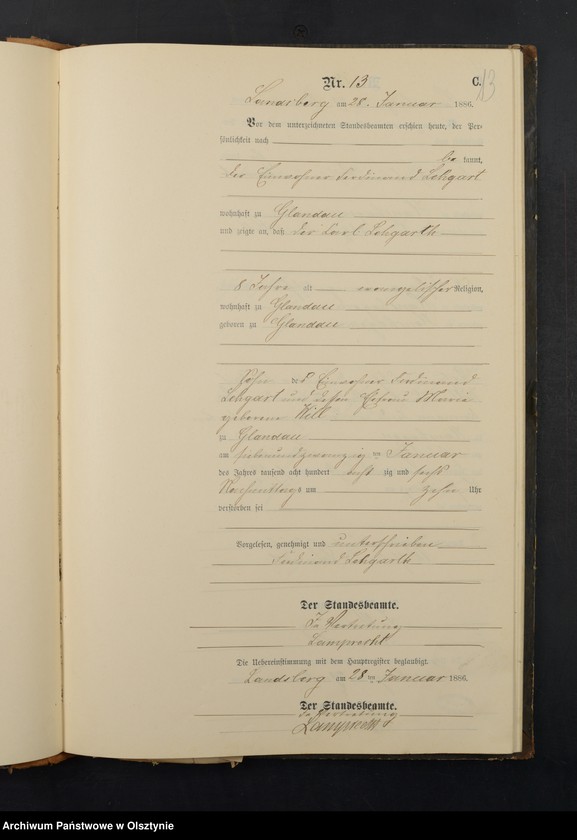 Nr. 13
C.
13
Landsberg am 28. Januar 1886.
Vor dem unterzeichneten Standesbeamten erschien heute, der Per-
sönlichkeit nach
be kannt,
der Einwohner Ferdinand Lehgart
wohnhaft zu Glandau
und zeigte an, daß der Carl Lehgarth
8 Jahre alt evangelischer Religion,
wohnhaft zu Glandau
geboren zu Glandau
Sohn des Einwohner Ferdinand
Lehgart und dessen Ehefrau Marie
geborene Will
zu Glandau
am siebenundzwanzig ten Januar
des Jahres tausend acht hundert acht zig und sechs
Nachmittags um zehn Uhr
verstorben sei
Vorgelesen, genehmigt und unterschrieben
Ferdinand Lehgarth
Der Standesbeamte.
In Vertretung
Lamprecht
Die Uebereinstimmung mit dem Hauptregister beglaubigt.
Landsberg am 28 ten Januar 1886.
Der Standesbeamte.
In Vertretung
Lamprecht
Archiwum Państwowe w Olsztynie